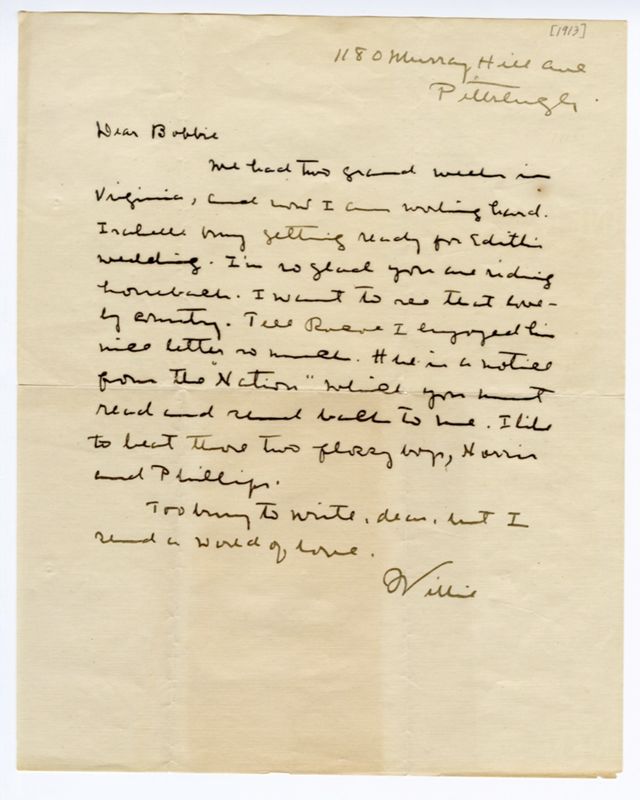 [1913]
1180 Murray Hill Ave
Pittsburgh.
Dear Bobbie
We had two grand weeks in
Virginia, and now I am working hard.
Isabelle busy getting ready for Edith's
wedding. I'm so glad you are riding
horseback. I want to see that love-
ly country. Tell Roscoe I enjoyed his
nice letter so much. Here is a notice
from the "Nation" which you must
read and send back to me. I like
to beat those two flossy boys, Norris
and Phillips.
Too busy to write, dear, but I
send a world of love.
Willie